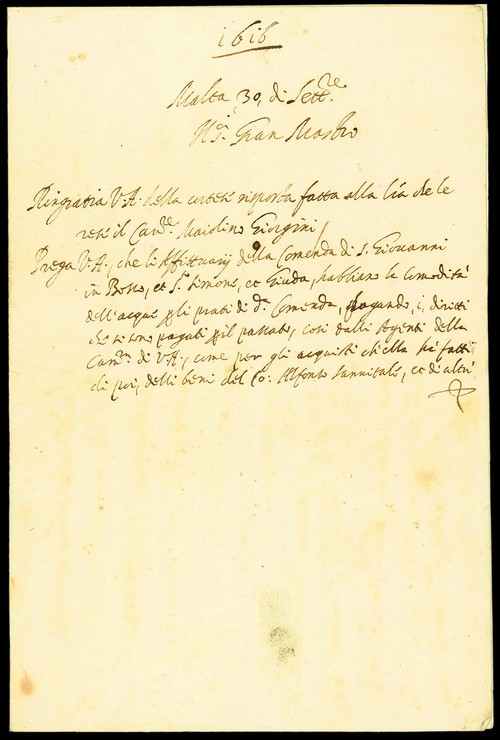 1616
Malta 30, di Sett.re
Il S.r Gran Mastro
Ringratia V.A. della cortese risposta fatta alla l.ra che le
rese il Cav.re Maiolino Giorgini,
Prega V.A., che li Affittuarij della Comenda di S. Giovanni
in Bosco, et S.ti Simone, et Giuda, habbiano la comodità
dell'acque p gli prati di d.a Comenda, pagando, i, diritti
che si sono pagati p il passato, così dalli Agenti della
Cam.ra di V.A., come per gli acquisti ch'ella hà fatti
di poi, delli beni del Co: Alfonso Sanvitale, et di altri